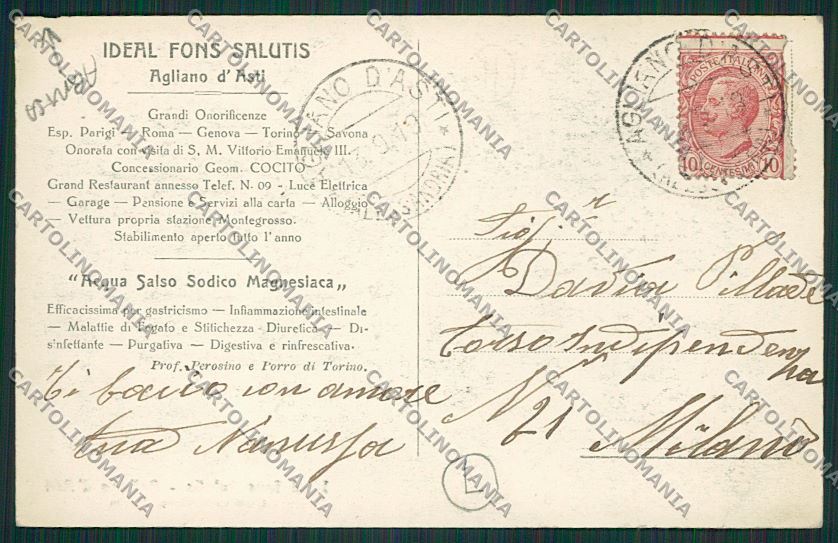 IDEAL FONS SALUTIS
Agliano d'Asti
Grandi Onorificenze
Esp. Parigi — Roma — Genova — Torino — Savona
Onorata con visita di S. M. Vittorio Emanuele III.
Concessionario Geom. COCITO
Grand Restaurant annesso Telef. N. 09 - Luce Elettrica
— Garage — Pensione e Servizi alla carta — Alloggio
— Vettura propria stazione Montegrosso.
Stabilimento aperto tutto l'anno
"Acqua Salso Sodico Magnesiaca„
Efficacissima per gastricismo — Infiammazione intestinale
— Malattie di Fegato e Stitichezza - Diuretica — Di-
sinfettante — Purgativa — Digestiva e rinfrescativa.
Prof. Perosino e Porro di Torino.
Ti bacio con amore
tua
AGLIANO D'ASTI
POSTE ITALIANE
10 CENTESIMI 10
AGLIANO D'ASTI
Sig.r
Pillade
Corso Indipendenza
N 21
Milano
L
CARTOLINOMANIA